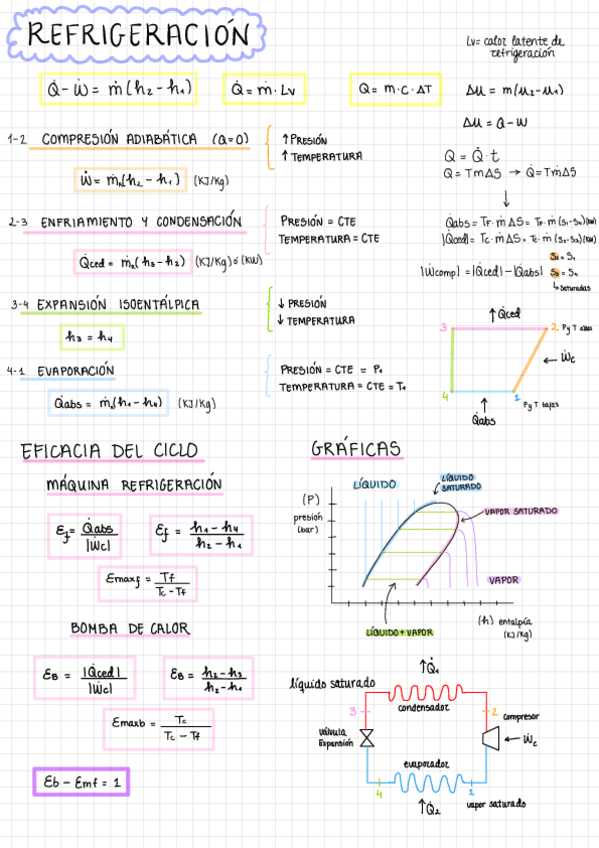 REFRIGERACIÓN
Lv= calor latente de
refrigeración
Q̇ - Ẇ = ṁ (h₂ - h₁)
Q̇ = ṁ · Lv
Q = m · C · ΔT
ΔU = m(u₂-u₁)
ΔU = Q - W
1-2 COMPRESIÓN ADIABÁTICA (Q=0)
↑ PRESIÓN
↑ TEMPERATURA
Ẇ = ṁ(h₂ - h₁) (KJ/Kg)
Q = Q̇ · t
Q = TmΔS → Q̇ = TṁΔS
↓
2-3 ENFRIAMIENTO Y CONDENSACIÓN
PRESIÓN = CTE
TEMPERATURA = CTE
Q̇ced = ṁ(h₃ - h₂) (KJ/Kg) ó (KW)
Q̇abs = TF · ṁ ΔS = TF · ṁ (S₁-S₄)(KW)
|Q̇ced| = Tc · ṁ ΔS = Tc · ṁ (S₂-S₃)(KW)
S₂ = S₁
|Ẇcomp| = |Q̇ced| - |Q̇abs| S₃ = S₄
↳ Saturadas
3-4 EXPANSIÓN ISOENTÁLPICA
↓ PRESIÓN
↓ TEMPERATURA
h₃ = h₄
4-1 EVAPORACIÓN
PRESIÓN = CTE = P₁
TEMPERATURA = CTE = T₁
Q̇abs = ṁ(h₁ - h₄) (KJ/Kg)
↑ Q̇ced
3
2 P y T altas
← Ẇc
4
1 P y T bajas
↑
Q̇abs
EFICACIA DEL CICLO
MÁQUINA REFRIGERACIÓN
Ɛf = Q̇abs / |Ẇc|
Ɛf = h₁ - h₄ / h₂ - h₁
Ɛmaxf = Tf / Tc - Tf
BOMBA DE CALOR
ƐB = |Q̇ced| / |Ẇc|
ƐB = h₂ - h₃ / h₂ - h₁
Ɛmaxb = Tc / Tc - Tf
Ɛb - Ɛmf = 1
GRÁFICAS
LÍQUIDO
LÍQUIDO
SATURADO
(P)
presión
(bar)
VAPOR SATURADO
VAPOR
LÍQUIDO + VAPOR
(h) entalpía
(KJ/Kg)
↑Q̇₁
líquido saturado
condensador
3
2
Compresor
válvula
Expansión
← Ẇc
evaporador
4
1
↑Q̇₂
vapor saturado